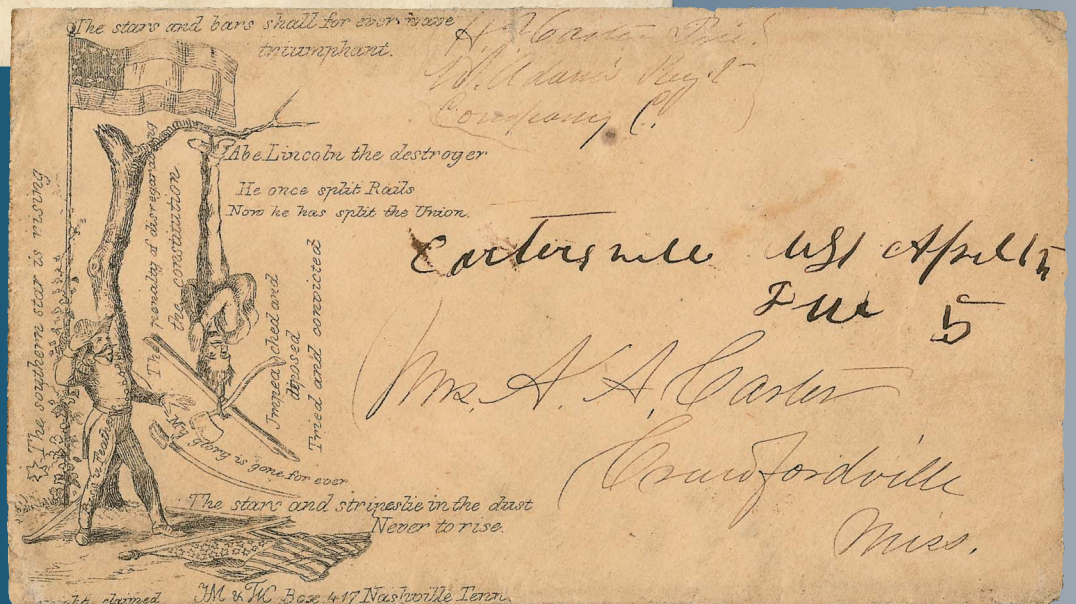 The stars and bars shall for ever wave
triumphant.
H. Carter
W. Adams Regt
Company C.
Abe Lincoln the destroyer
He once split Rails
Now he has split the Union.
The southern star is rising
The penalty of disregarding
the constitution
Impeached and
diposed
Tried and convicted
My glory is gone for ever
The stars and stripes lie in the dust
Never to rise.
claimed
JM & TK Box 417 Nashville Tenn.
Cartersville April
Due 5
Mrs. A. A. Carter
Crawfordville
Miss.